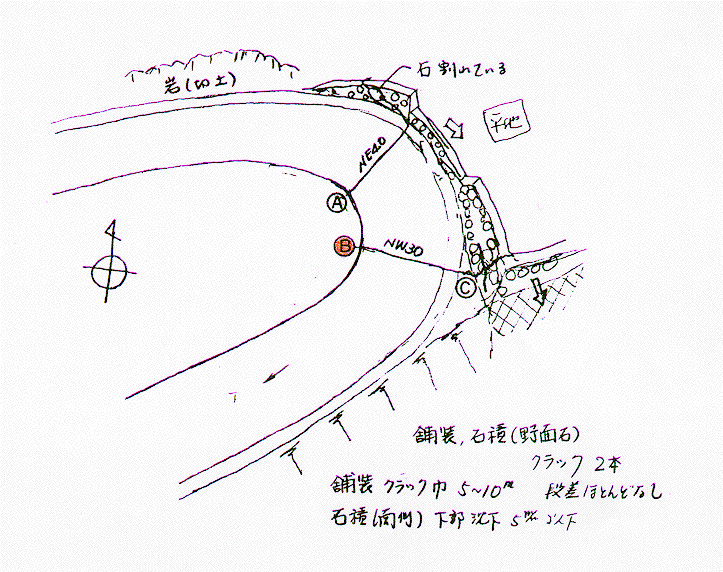 石割れている
岩(切土)
平地
NE40
A
B
NW30
C
舗装,石積(野面石)
クラック 2本
舗装 クラック巾 5~10㎜ 段差ほとんどなし
石積(両側) 下部沈下 5㎜以下